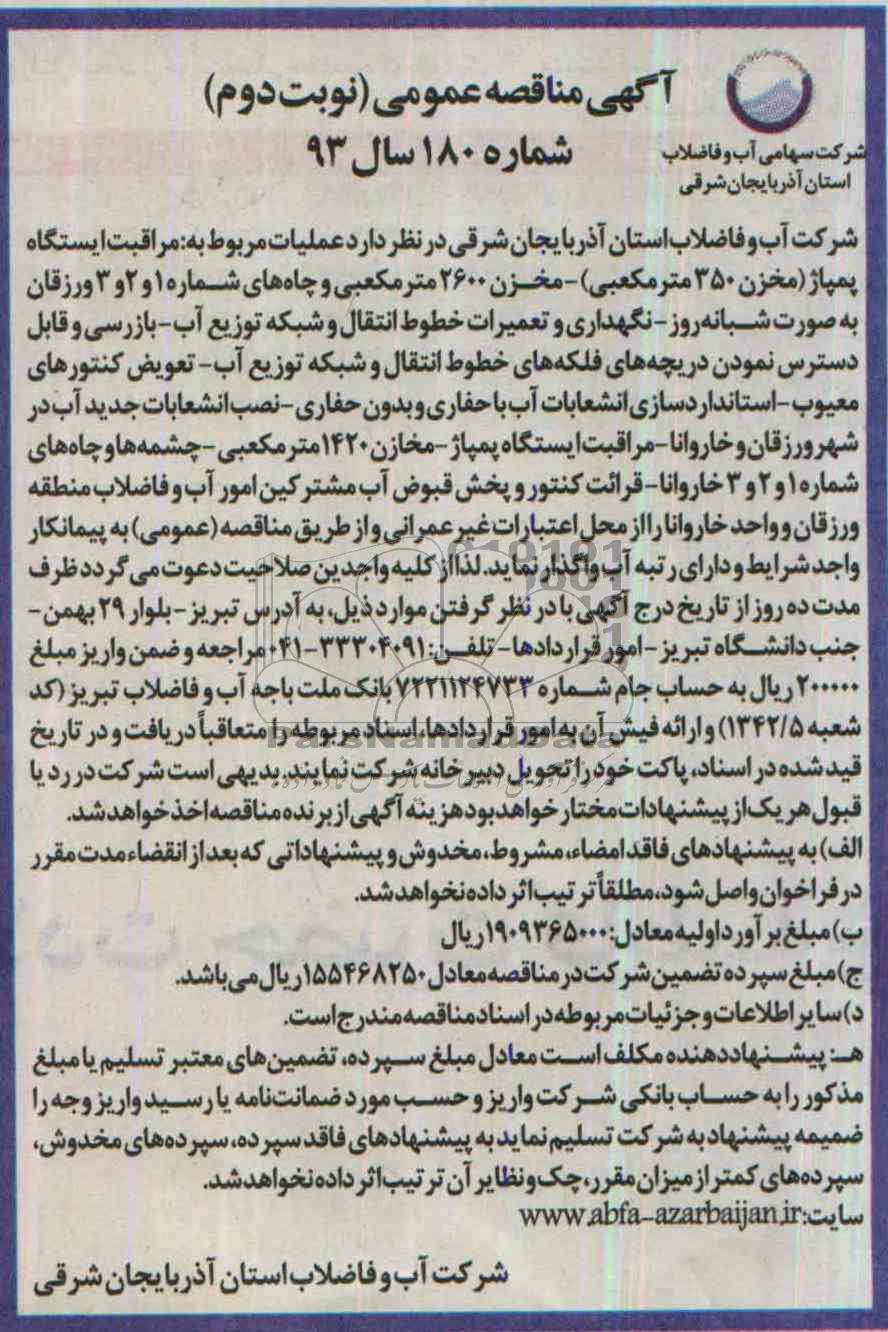 آگهی مناقصه عمومی (نوبت دوم)
شماره ۱۸۰ سال ۹۳
شرکت سهامی آب و فاضلاب
استان آذربایجان شرقی
شرکت آب و فاضلاب استان آذربایجان شرقی در نظر دارد عملیات مربوط به: مراقبت ایستگاه
پمپاژ (مخزن ۳۵۰ متر مکعبی) - مخزن ۲۶۰۰ متر مکعبی و چاه‌های شماره ۱ و ۲ و ۳ ورزقان
به صورت شبانه‌روز - نگهداری و تعمیرات خطوط انتقال و شبکه توزیع آب - بازرسی و قابل
دسترس نمودن دریچه‌های فلکه‌های خطوط انتقال و شبکه توزیع آب - تعویض کنتورهای
معیوب - استانداردسازی انشعابات آب با حفاری و بدون حفاری - نصب انشعابات جدید آب در
شهر ورزقان و خاروانا - مراقبت ایستگاه پمپاژ - مخازن ۱۴۲۰ متر مکعبی - چشمه‌ها و چاه‌های
شماره ۱ و ۲ و ۳ خاروانا - قرائت کنتور و پخش قبوض آب مشترکین امور آب و فاضلاب منطقه
ورزقان و واحد خاروانا را از محل اعتبارات غیر عمرانی و از طریق مناقصه (عمومی) به پیمانکار
واجد شرایط و دارای رتبه آب واگذار نماید. لذا از کلیه واجدین صلاحیت دعوت می‌گردد ظرف
مدت ده روز از تاریخ درج آگهی با در نظر گرفتن موارد ذیل، به آدرس تبریز - بلوار ۲۹ بهمن -
جنب دانشگاه تبریز - امور قراردادها - تلفن: ۳۳۳۰۴۰۹۱-۰۴۱ مراجعه و ضمن واریز مبلغ
۲۰۰۰۰۰ ریال به حساب جام شماره ۷۲۲۱۱۲۴۷۳۳ بانک ملت باجه آب و فاضلاب تبریز (کد
شعبه ۱۳۴۲/۵) و ارائه فیش آن به امور قراردادها، اسناد مربوطه را متعاقباً دریافت و در تاریخ
قید شده در اسناد، پاکت خود را تحویل دبیرخانه شرکت نمایند. بدیهی است شرکت در رد یا
قبول هر یک از پیشنهادات مختار خواهد بود هزینه آگهی از برنده مناقصه اخذ خواهد شد.
الف) به پیشنهادهای فاقد امضاء، مشروط، مخدوش و پیشنهاداتی که بعد از انقضاء مدت مقرر
در فراخوان واصل شود، مطلقاً ترتیب اثر داده نخواهد شد.
ب) مبلغ برآورد اولیه معادل: ۱۹۰۹۳۶۵۰۰۰ ریال
ج) مبلغ سپرده تضمین شرکت در مناقصه معادل ۱۵۵۴۶۸۲۵۰ ریال می‌باشد.
د) سایر اطلاعات و جزئیات مربوطه در اسناد مناقصه مندرج است.
هـ: پیشنهاددهنده مکلف است معادل مبلغ سپرده، تضمین‌های معتبر تسلیم یا مبلغ
مذکور را به حساب بانکی شرکت واریز و حسب مورد ضمانت‌نامه یا رسید واریز وجه را
ضمیمه پیشنهاد به شرکت تسلیم نماید به پیشنهادهای فاقد سپرده، سپرده‌های مخدوش،
سپرده‌های کمتر از میزان مقرر، چک و نظایر آن ترتیب اثر داده نخواهد شد.
سایت: www.abfa-azarbaijan.ir
شرکت آب و فاضلاب استان آذربایجان شرقی